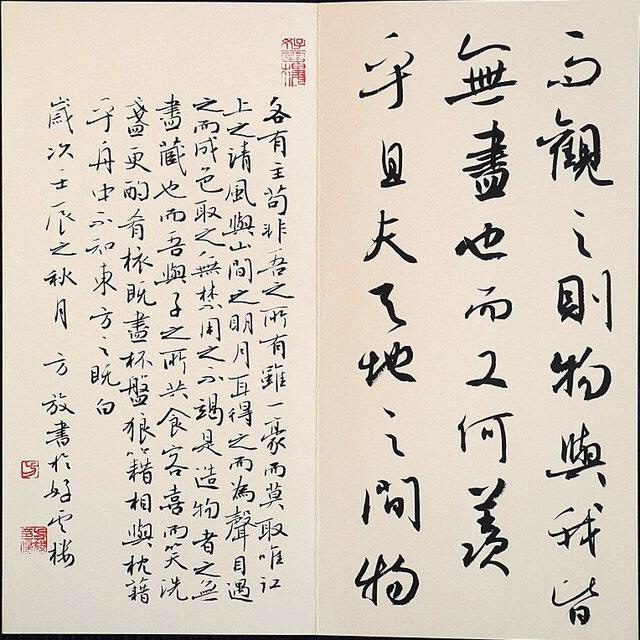 而觀之則物與我皆
無盡也而又何羨
乎且夫天地之間物
各有主苟非吾之所有雖一豪而莫取唯江
上之清風與山間之明月耳得之而為聲目遇
之而成色取之無禁用之不竭是造物者之無
盡藏也而吾與子之所共食客喜而笑洗
盞更酌肴核既盡杯盤狼籍相與枕藉
乎舟中不知東方之既白
歲次壬辰之秋月 方放書於好雲樓